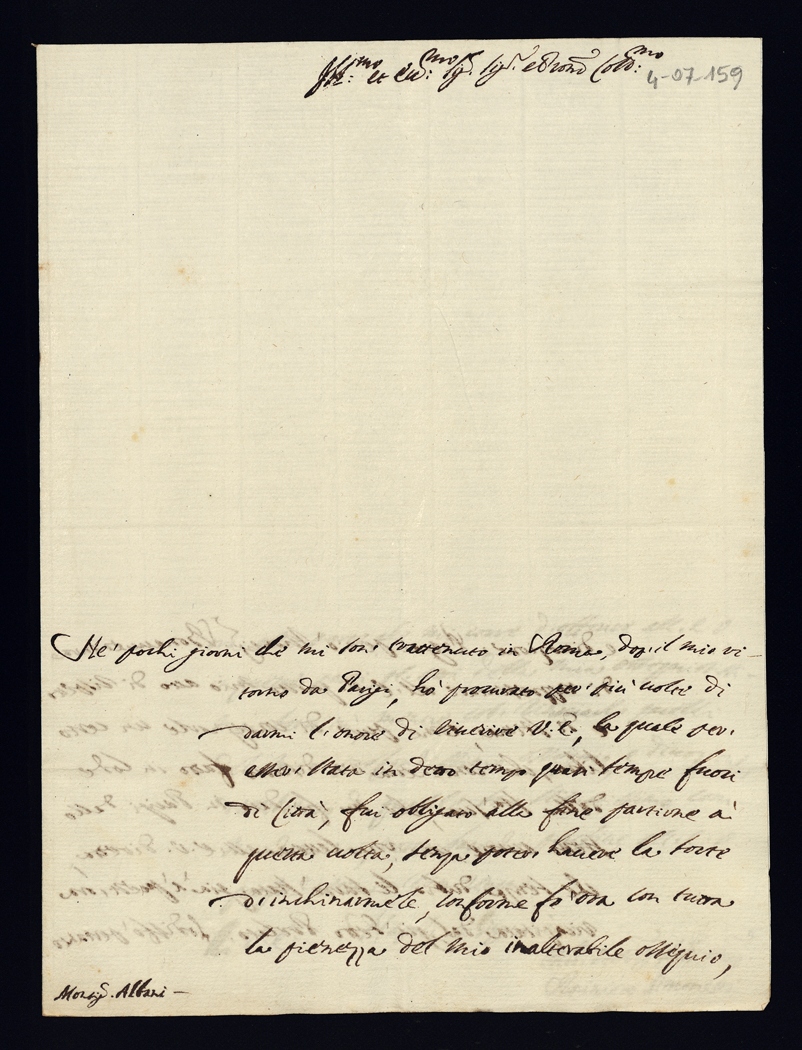 Ill:mo et Ecc:mo Sig.r Sig.r e Pron Col:mo
4-07-159
Ne' pochi giorni che mi son trattenuto in Roma, dop il mio ri-
torno da Parigi, hò procurato per più volte di
darmi l'onore di riverire V.E., la quale per
esser stata in detto tempo quasi sempre fuori
di Città, fui obbligato alla fine partirne à
questa volta, senza poter havere la sorte
d'inchinarmele, conforme fò ora con tutta
la pienezza del mio inalterabile ossequio,
Monsig.r Albani -